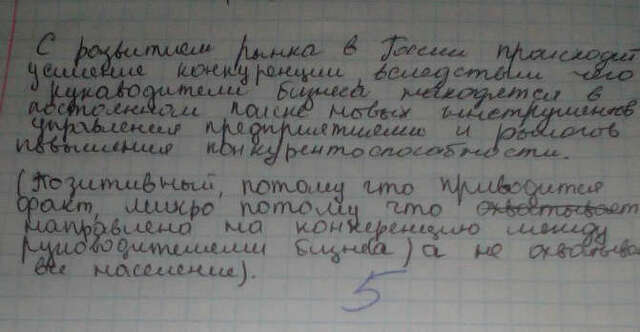 С развитием рынка в России происходит
усиление конкуренции, вследствии чего
руководители бизнеса находятся в
постоянном поиске новых инструментов
управления предприятиями и рычагов
повышения конкурентоспособности.
(Позитивный, потому что приводится
факт, микро потому что охватывает
направлена на конкеренцию между
руководителеми бизнеса) а не охватыва
все население).
5